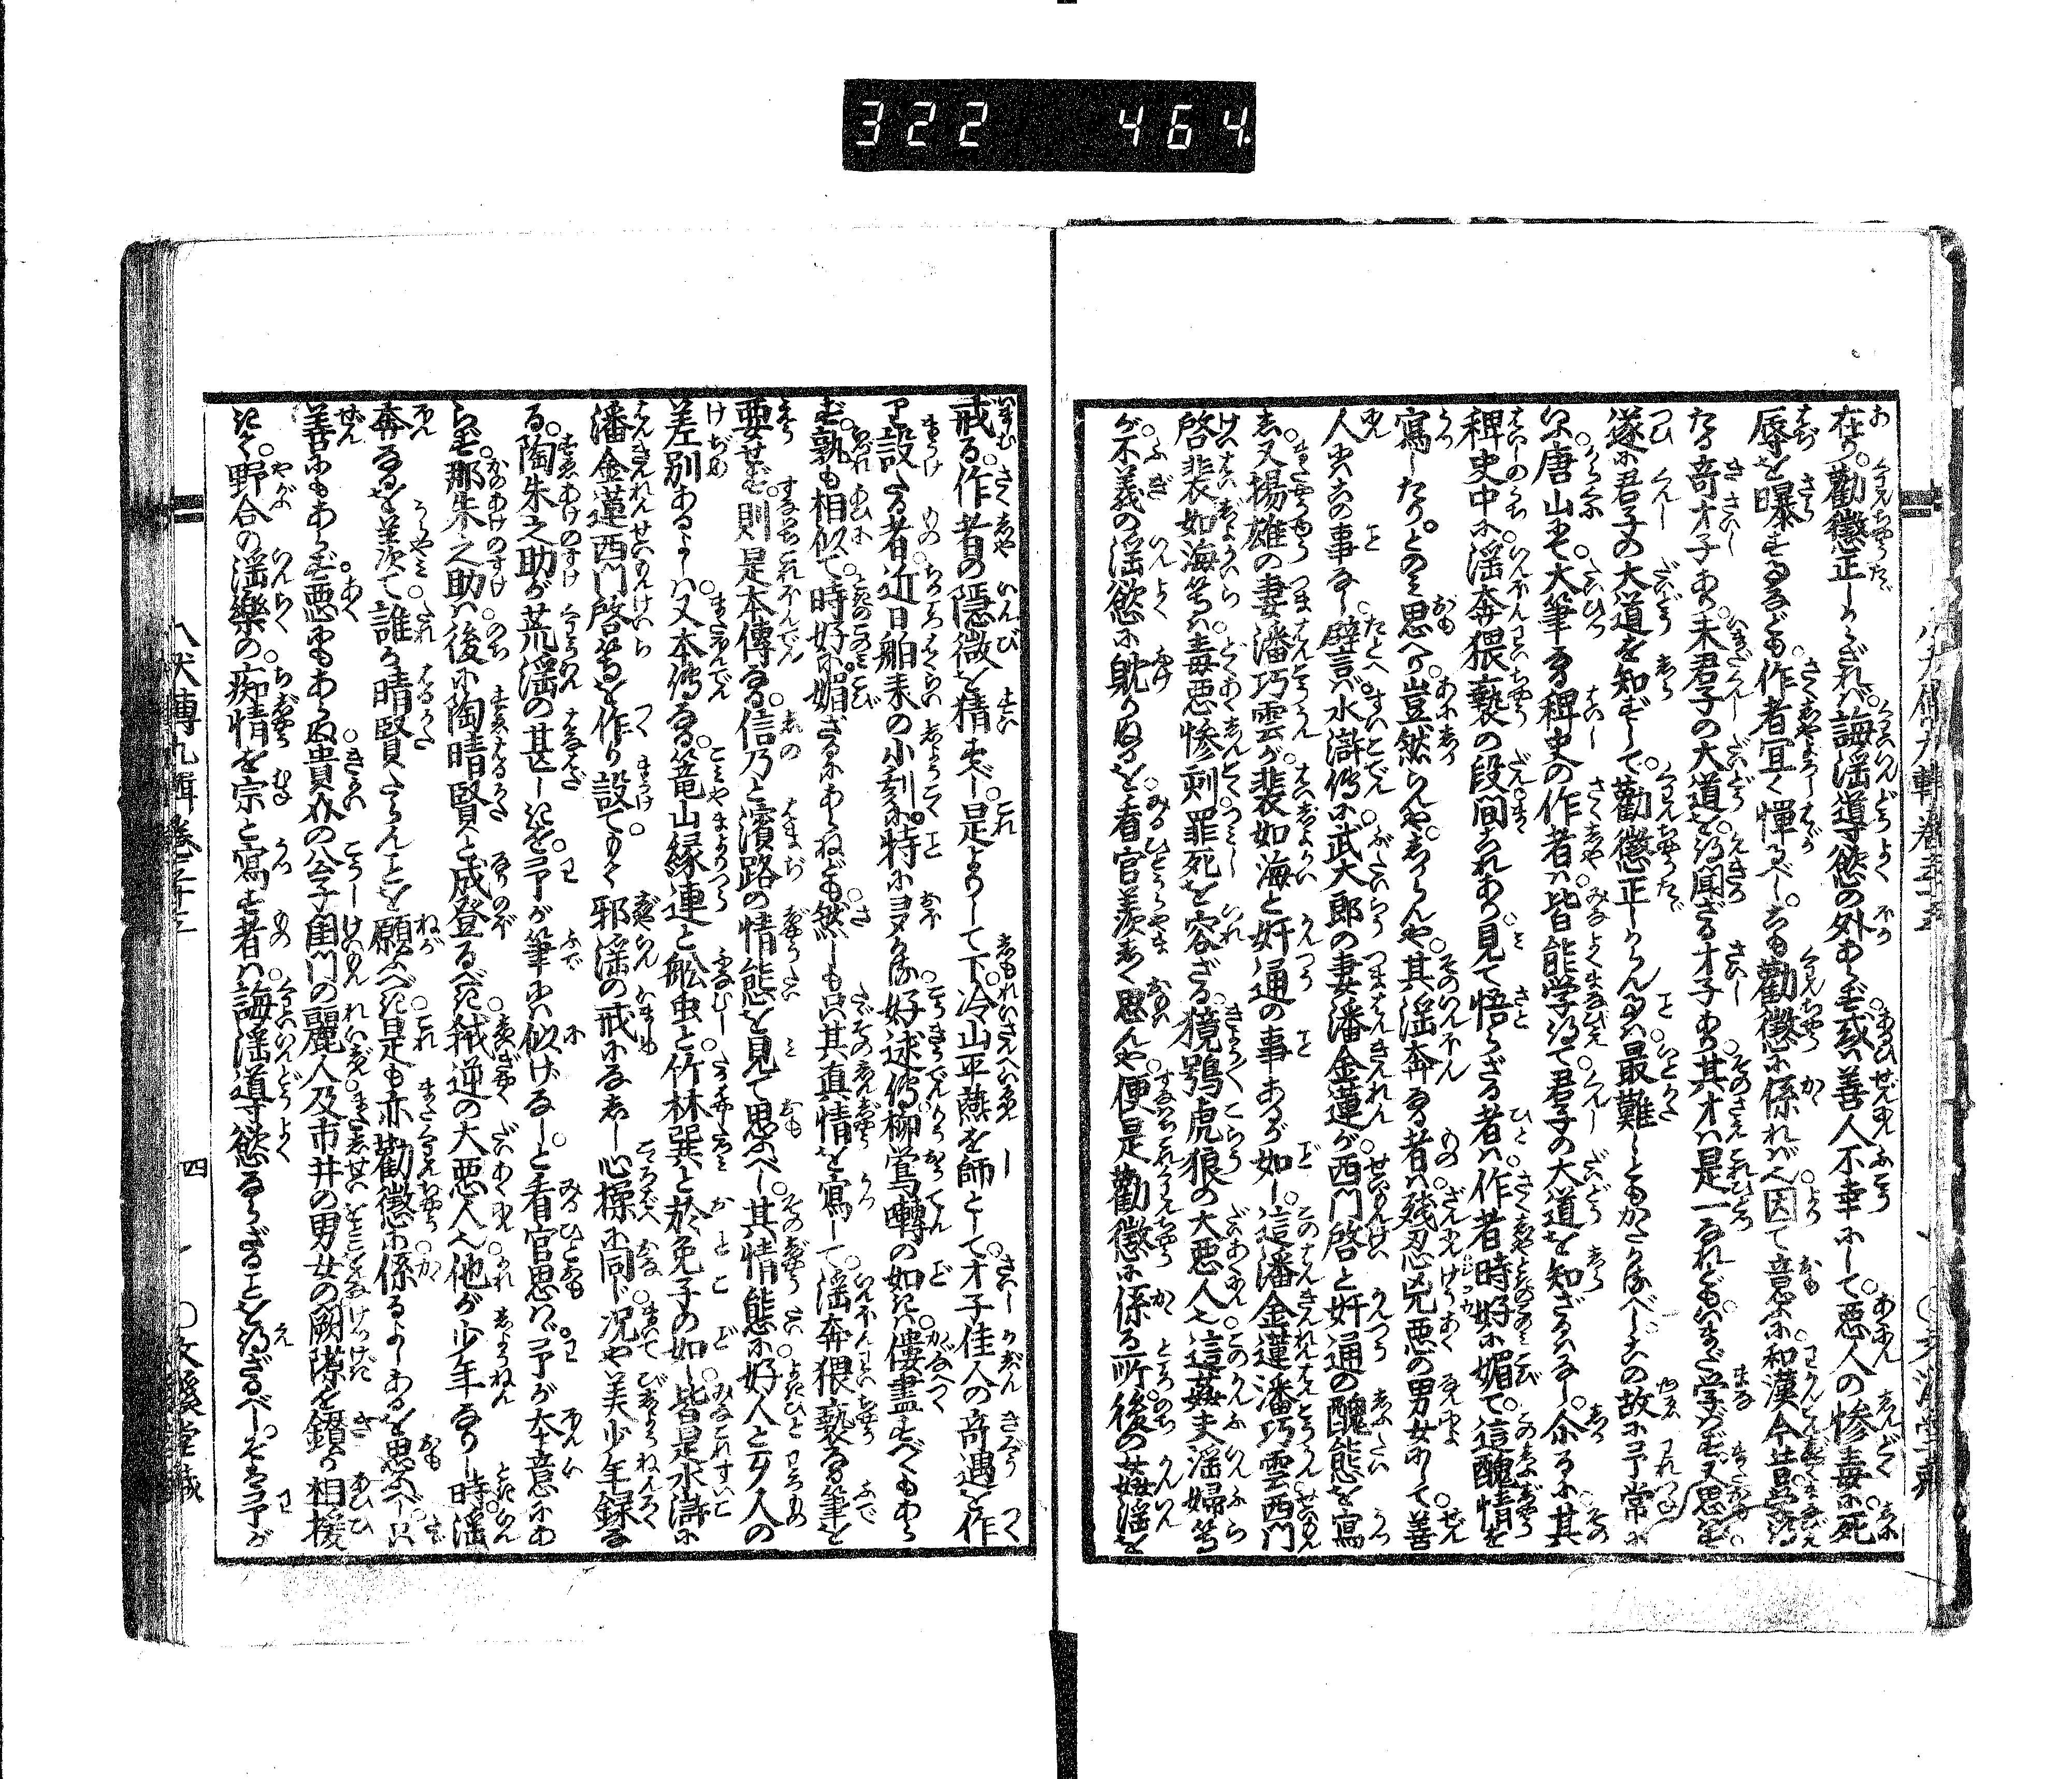 322 464
在り。勸懲正しからざれば。誨淫導慾の外あらず。或は善人不幸にして。悪人の惨毒に死
辱を曝するなども。作者宜く憚べし。こも勸懲に係れば也。因て意ふに和漢今昔學得
たる奇才子あり。未君子の大道を得聞ざる才子あり。其才は是一なれども。いまだ学ばず又思はず
遂に君子の大道を知ずして。勸懲正しからん事は。最難しともかたかるべし。この故に予常に
いふ。唐山にて大筆なる稗史の作者は。皆能学得て。君子の大道を知ざるはなし。尒るに其
稗史中に。淫奔猥褻の段間これあり。見て悟らざる者は。作者時好に媚て。這醜情を
寫したり。とのみ思へり。豈然らんや。しからんや。其淫奔なる者は。残忍兇悪の男女にして。善
人にはこの事なし。譬言ば水滸傳に。武大郎の妻潘金蓮が。西門啓と奸通の醜態を寫
し。又楊雄の妻潘巧雲が。裴如海と奸通の事あるが如し。這潘金蓮潘巧雲。西門
啓裴如海等は。毒悪惨刻罪死を容ざる。獍鴞虎狼の大悪人也。這姦夫淫婦等
が不義の淫慾に耽りぬるを。看官羨しく思んや。便是勸懲に係る所。後の女姦淫を
戒る。作者の隱微を猜すべし。是よりして下。冷山平燕を師として。才子佳人の奇遇を作
り設たる者。近日舶来の小刻に。特にヨタかる。好逑傳柳鶯囀の如き。僂盡すべくもあら
ず。孰も相似て。時好に媚ざるにあらねども。然しも只其真情を寫して。淫奔猥褻なる筆を
要せず。則是本傳なる。信乃と濱路の情態を見て思ふべし。其情態に好人と歹人の
差別あるよしは。又本傳なる。篭山縁連と舩虫と。竹林巽と於兔子の如し。皆是水滸に
潘金蓮西門啓等を作り設て。もて邪淫の戒になしゝ心操に同じ。況や美少年録な
る。陶朱之助が荒淫の甚しきを。予が筆には似げなし。と看官思はゞ。予が本意にあ
らず。那朱之助は。後に陶晴賢と成登るべき。弑逆の大悪人也。他が少年なりし時。淫
奔なるを羨て。誰か晴賢たらんことを願ふべき。是も亦勸懲に係るよしあるを思ふべし。只
善にもあらず。悪にもあらぬ。貴介の公子閨門の麗人。及市井の男女の闕隙を鑚り。相援
きて。野合の淫樂の。痴情を宗と寫す者は。誨淫導慾ならざることを得ざるべし。そを予が
八犬傳九輯卷三十三 四 ○文溪堂藏